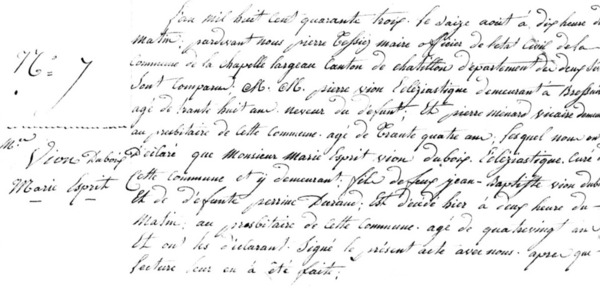 N.º 7
M.in
Vion Dubois
Marie Esprit
L'an mil huit cent quarante trois, le seize août à dix heure du
matin; pardevant nous pierre Tessier maire officier de l'état civil de la
commune de la Chapelle largeau Canton de chatillon département des deux Sèvres
Sont Comparus M. M. pierre vion Eclésiastique demeurant à Bressuire
agé de trante huit ans, neveux du defunt; Et pierre menard vicaire demeurant
au presbitaire de Cette Commune agé de Trante quatre ans, lesquel nous ont
Déclaré que Monsieur Marie Esprit vion dubois, Eclésiastique, Curé de
Cette Commune et y demeurant, fils de feux jean-Baptiste vion dubois
Et de defunte perrine Daraud; Est décédé hier à deux heure du
Matin; au presbitaire de Cette Commune, agé de quatrevingt an
Et ont les déclarant Signé le présent acte avec nous, aprex que
lecture leur en à été faite;